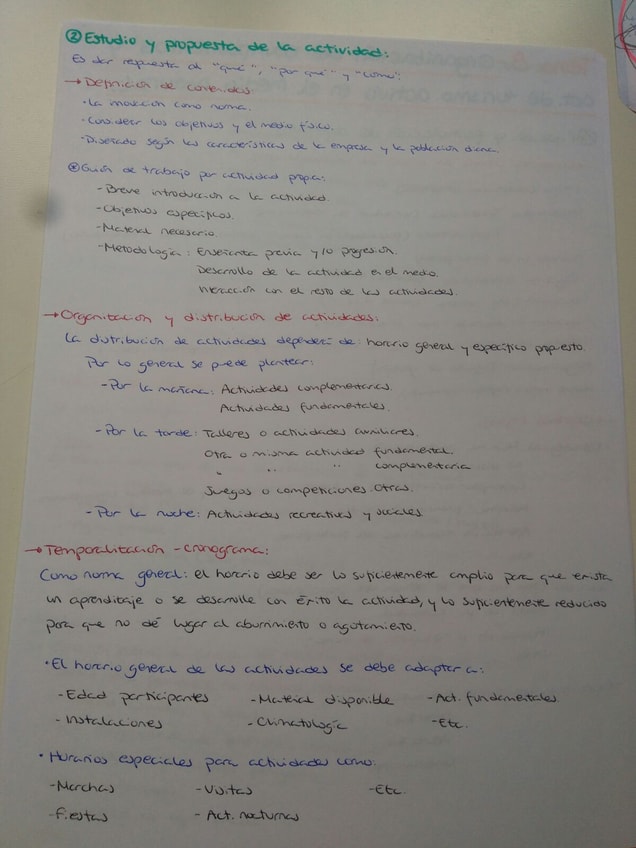 ② Estudio y propuesta de la actividad:
Es dar respuesta al "qué", "por qué" y "cómo":
→ Definición de contenidos
· La innovación como norma.
· Considerar los objetivos y el medio físico.
· Diseñado según las características de la empresa y la población diana.
Guión de trabajo por actividad propia:
- Breve introducción a la actividad.
- Objetivos específicos.
- Material necesario.
- Metodología: Enseñanza previa y/o progresión.
Desarrollo de la actividad en el medio.
Interacción con el resto de las actividades.
→ Organización y distribución de actividades:
La distribución de actividades dependerá de: horario general y específico propuesto.
Por lo general se puede plantear:
- Por la mañana: Actividades complementarias.
Actividades fundamentales.
- Por la tarde: Talleres o actividades auxiliares.
Otra o misma actividad fundamental.
" " " complementaria
Juegos o competiciones. Otras.
- Por la noche: Actividades recreativas y sociales.
→ Temporalización - cronograma:
Como norma general: el horario debe ser lo suficientemente amplio para que exista
un aprendizaje o se desarrolle con éxito la actividad, y lo suficientemente reducido
para que no dé lugar al aburrimiento o agotamiento.
· El horario general de las actividades se debe adaptar a:
- Edad participantes - Material disponible - Act. fundamentales.
- Instalaciones - Climatología - Etc.
· Horarios especiales para actividades como:
- Marchas - Visitas - Etc.
- Fiestas - Act. nocturnas